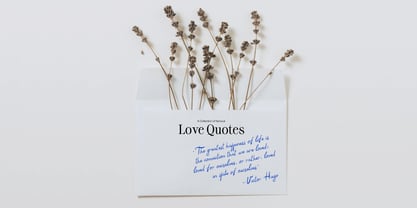 A Collection of Famous
Love Quotes
"The greatest happiness of life is
the conviction that we are loved;
loved for ourselves, or rather, loved
in spite of ourselves"
- Victor Hugo